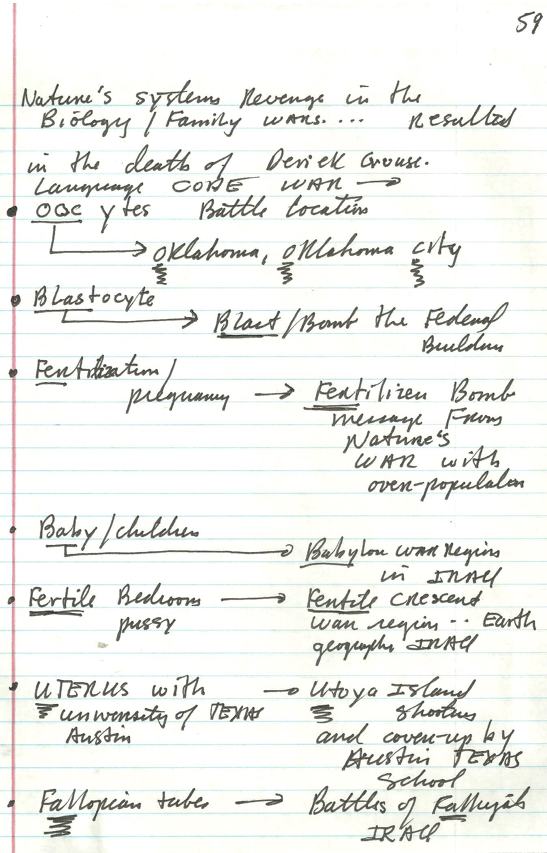 59
Nature's systems Revenge in the
Biology / Family WARS.... Resulted
in the death of Derick Crouse.
Language CODE WAR →
• OOC ytes Battle location
→ OKlahoma, OKlahoma city
• Blastocyte
→ Blast / Bomb the Federal
Building
• Fertilization /
pregnancy → Fertilizer Bomb
message From
Nature's
WAR with
over-population
• Baby / children
→ Babylon war Region
in IRAQ
• Fertile Bedroom → Fertile Crescent
pussy war region .. Earth
geography IRAQ
• UTERUS with → Utoya Island
university of TEXAS shooting
Austin and cover-up by
AUSTIN TEXAS
School
• Fallopian tubes → Battles of Fallujah
IRAQ